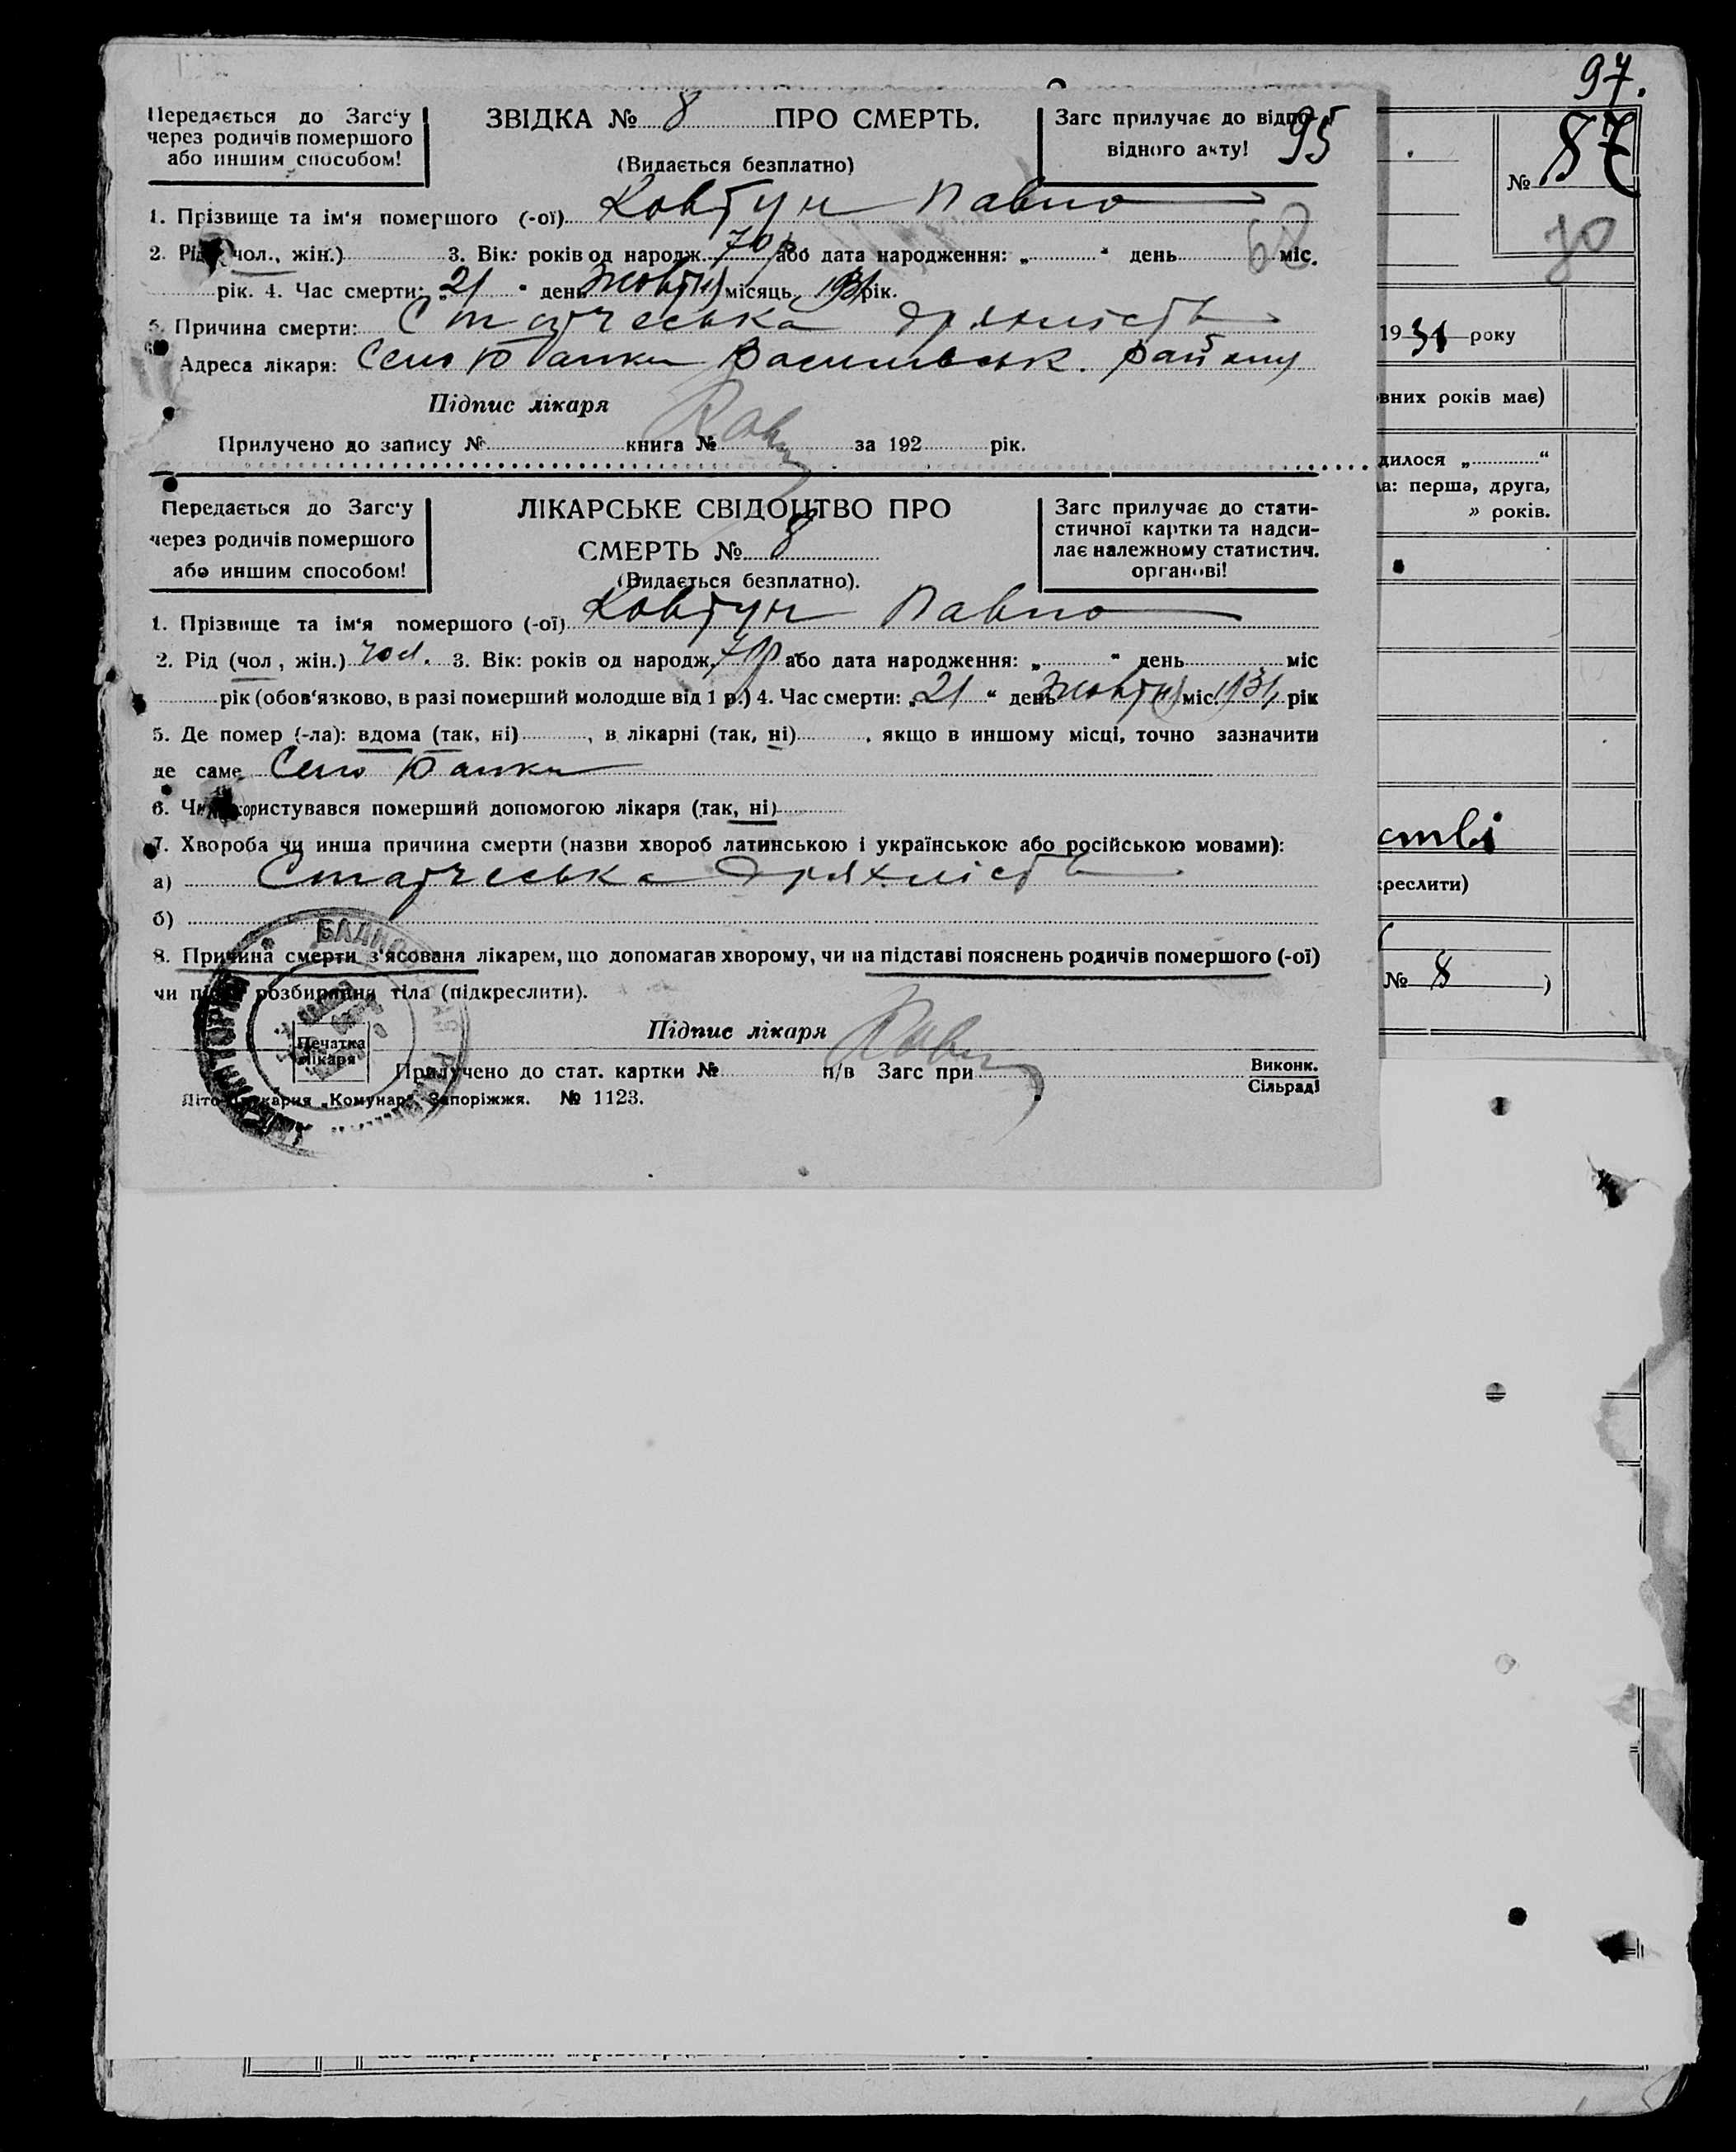 97.
Передається до Загс'у
через родичів помершого
або иншим способом!
ЗВІДКА № 8 ПРО СМЕРТЬ.
(Видається безплатно)
Загс прилучає до відпо-
відного акту!
95
№ 87
70
1. Прізвище та ім'я помершого (-ої) Ковтун Павло
68
2. Рід (чол., жін.) 3. Вік: років од народж. 70 р або дата народження: „ “ день міс.
рік. 4. Час смерти: „21 “ день Жовтня місяць 1931 рік.
5. Причина смерти: Старчеська дряхлість
Адреса лікаря: Село Балки Васильевськ. району
Підпис лікаря
Прилучено до запису № книга № за 192 рік.
1931 року
вних років має)
дилося „ “
ла: перша, друга,
» років.
Передається до Загс'у
через родичів помершого
або иншим способом!
ЛІКАРСЬКЕ СВІДОЦТВО ПРО
СМЕРТЬ № 8
(Видається безплатно).
Загс прилучає до стати-
стичної картки та надси-
лає належному статистич.
органові!
1. Прізвище та ім'я помершого (-ої) Ковтун Павло
2. Рід (чол, жін.) чол. 3. Вік: років од народж. 70р або дата народження: „ “ день міс
рік (обов'язково, в разі померший молодше від 1 р.) 4. Час смерти: „21 “ день Жовтня міс. 1931 рік
5. Де помер (-ла): вдома (так, ні) , в лікарні (так, ні) , якщо в иншому місці, точно зазначити
де саме Село Балки
6. Чи користувався померший допомогою лікаря (так, ні)
7. Хвороба чи инша причина смерти (назви хвороб латинською і українською або російською мовами):
а) Старческа дряхлість
б)
8. Причина смерти з'ясована лікарем, що допомагав хворому, чи на підставі пояснень родичів помершого (-ої)
чи після розбирання тіла (підкреслити).
Підпис лікаря
Печатка
лікаря
Прилучено до стат. картки № п/в Загс при Виконк.
Сільраді
Літо-друкарня „Комунар“ Запоріжжя. № 1123.
стві
креслити)
№ 8 )